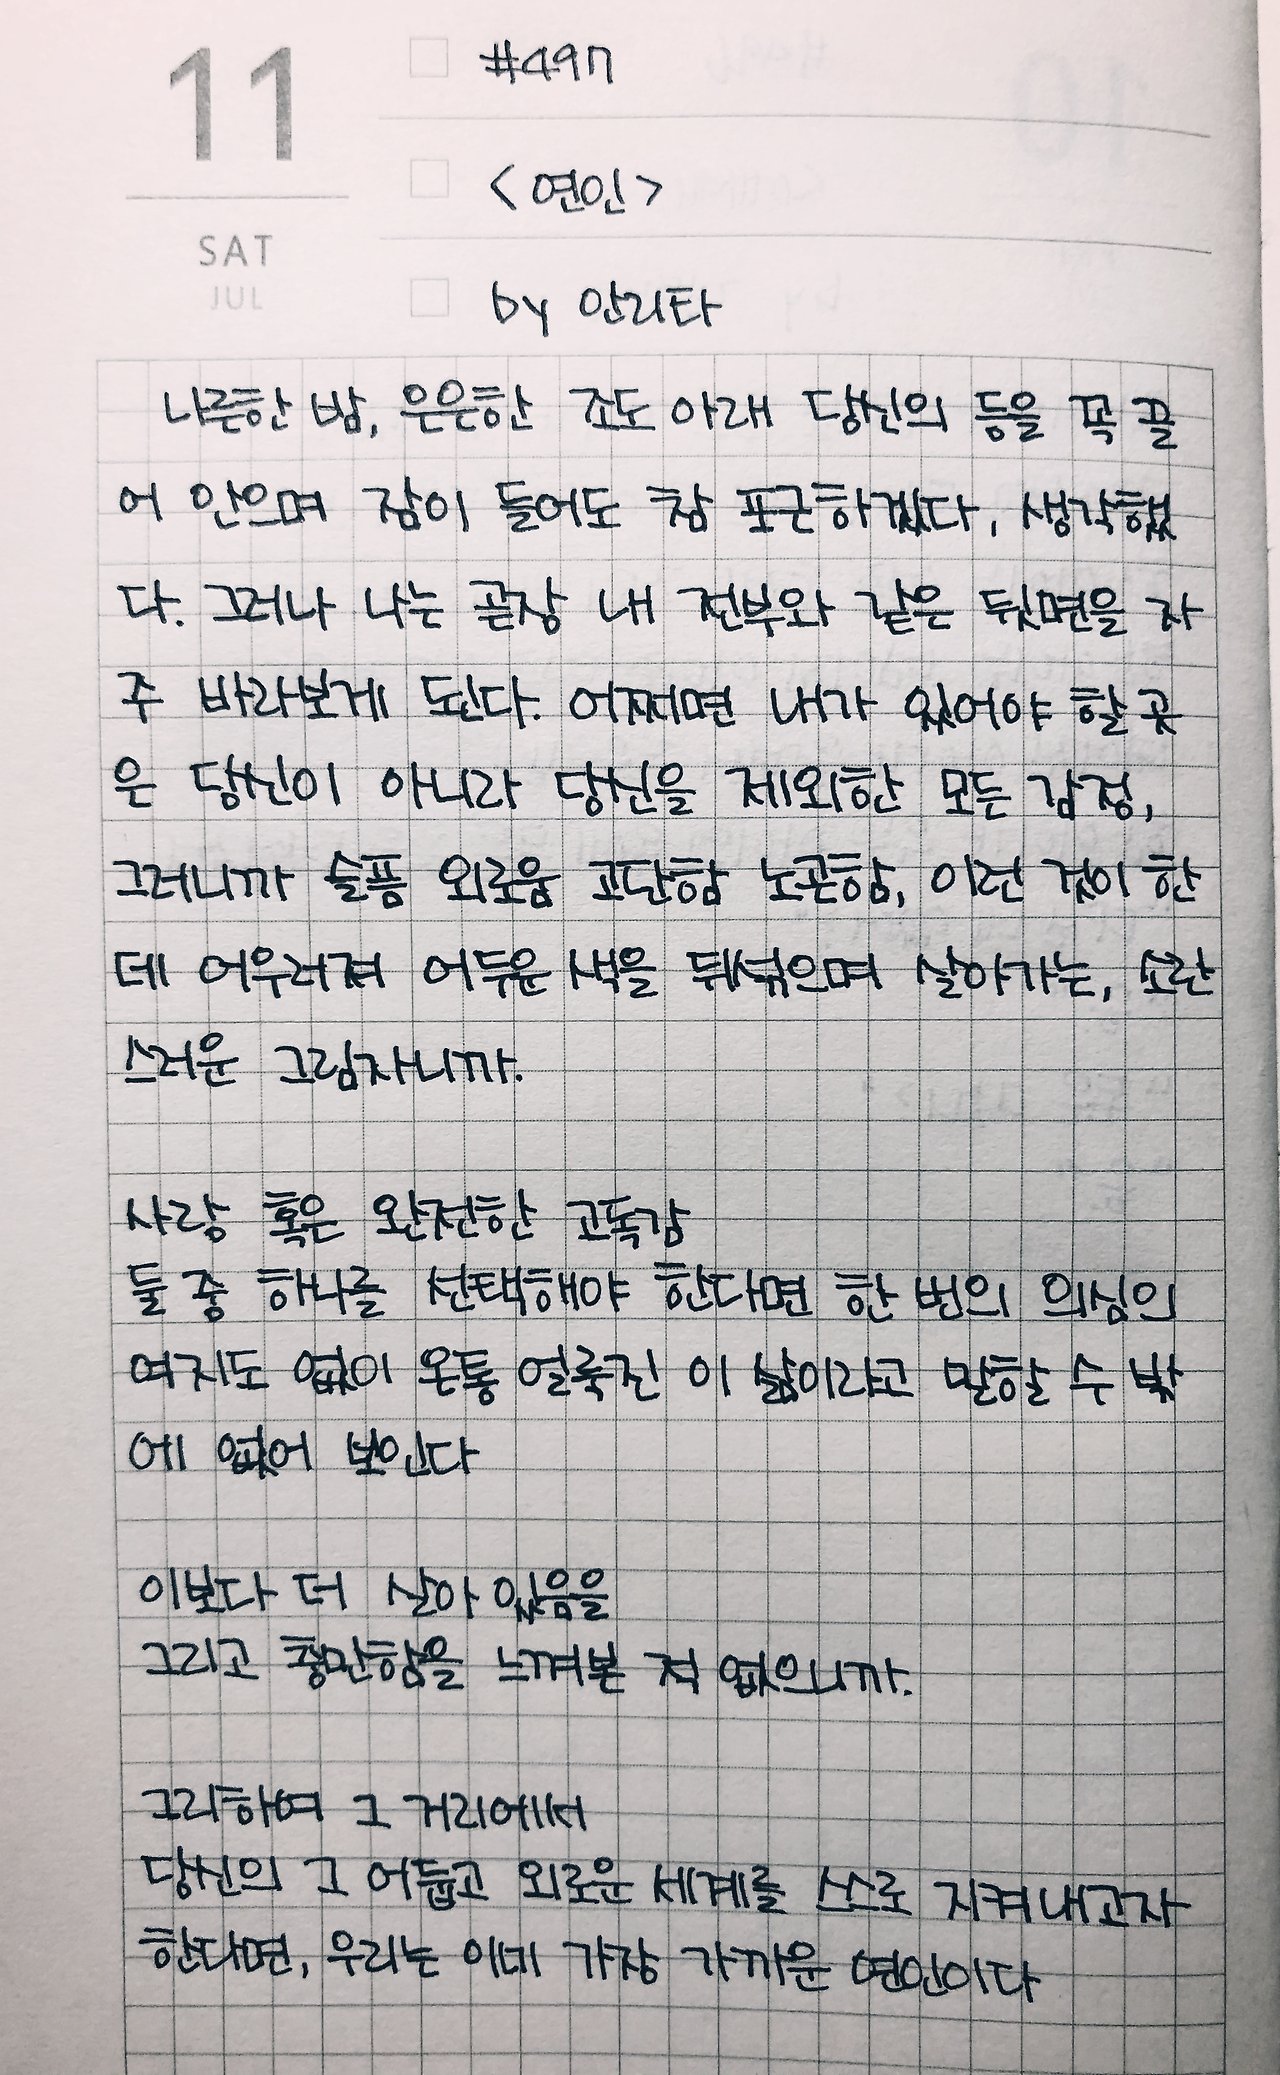 11
SAT
JUL
#497
<연인>
by 안리타
나른한 밤, 은은한 조도 아래 당신의 등을 꼭 끌
어 안으며 잠이 들어도 참 포근하겠다, 생각했
다. 그러나 나는 곧장 내 전부와 같은 뒷면을 자
주 바라보게 된다. 어쩌면 내가 있어야 할 곳
은 당신이 아니라 당신을 제외한 모든 감정,
그러니까 슬픔 외로움 고단함 노곤함, 이런 것이 한
데 어우러져 어두운 색을 뒤섞으며 살아가는, 소란
스러운 그림자니까.
사랑 혹은 완전한 고독감
둘 중 하나를 선택해야 한다면 한 번의 의심의
여지도 없이 온통 얼룩진 이 삶이라고 말할 수 밖
에 없어 보인다
이보다 더 살아 있음을
그리고 충만함을 느껴본 적 없으니까.
그리하여 그 거리에서
당신의 그 어둡고 외로운 세계를 스스로 지켜내고자
한다면, 우리는 이네 가장 가까운 연인이다